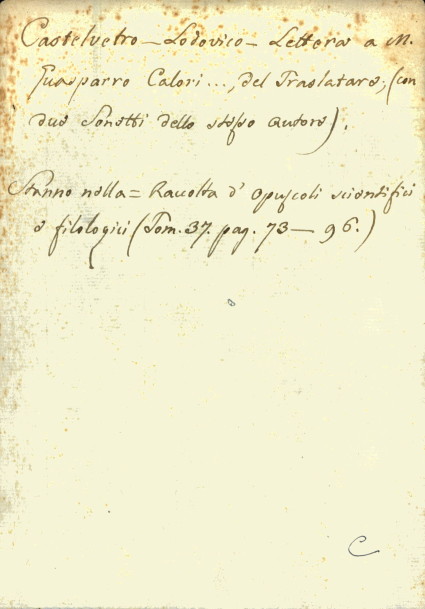 Castelvetro - Lodovico - Lettera a M.
Guasparro Calori ..., del Traslatare; (con
due Sonetti dello stesso autore).
Stanno nella = Raccolta d' opuscoli scientifici
e filologici (Tom. 37. pag. 73 — 96.)
C